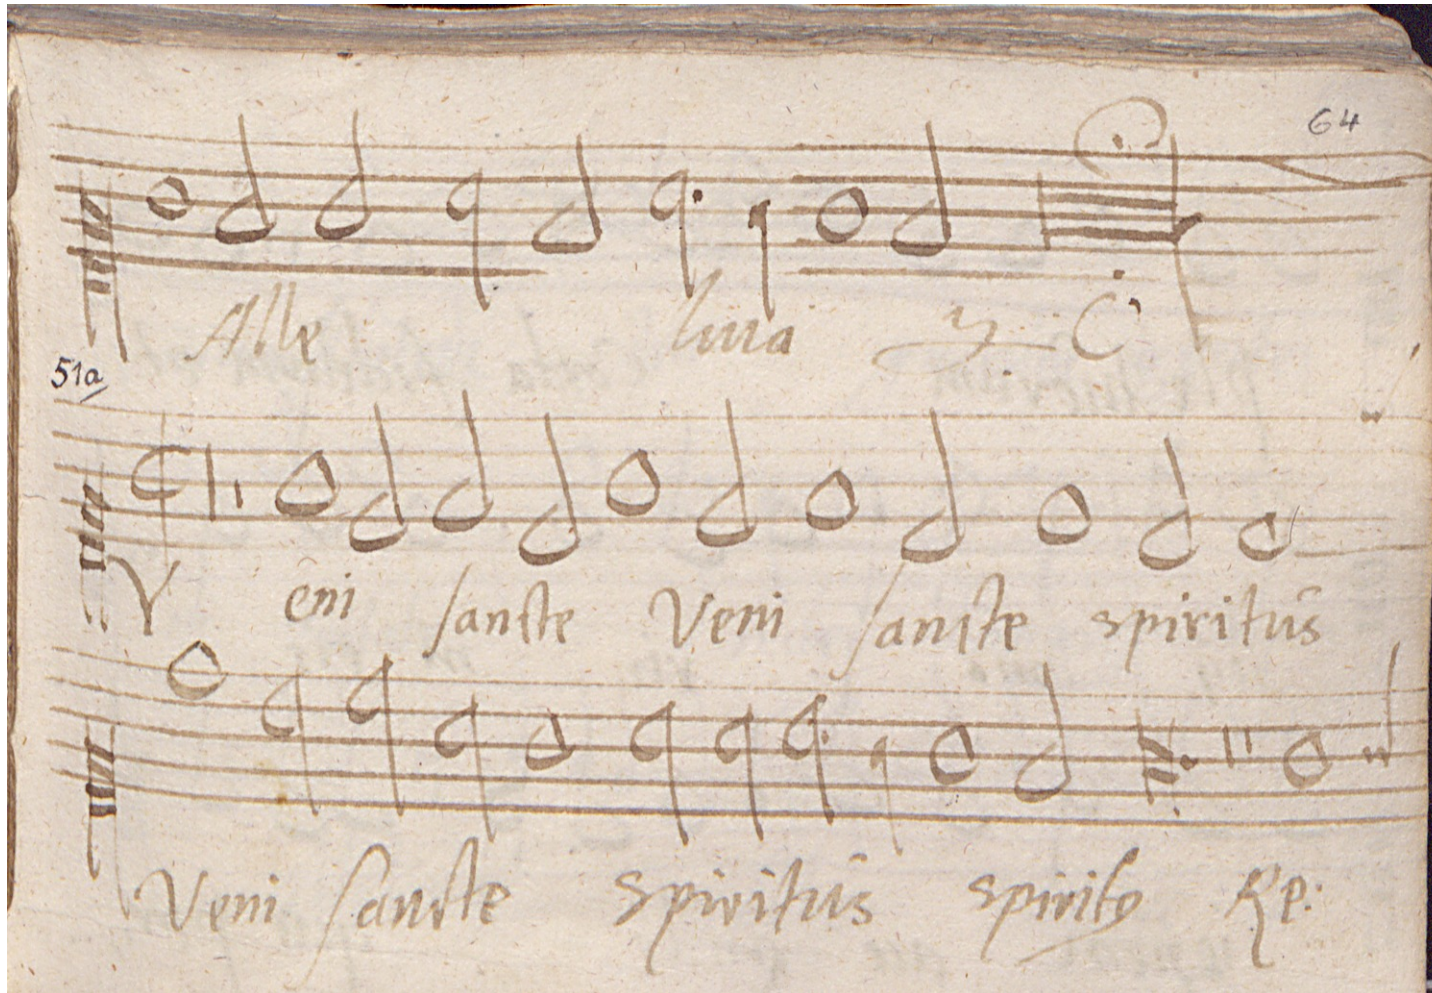 64
Alle luia ij
51a
Veni sancte Veni sancte spiritūs
Veni sancte spiritūs spiritꝯ Re: